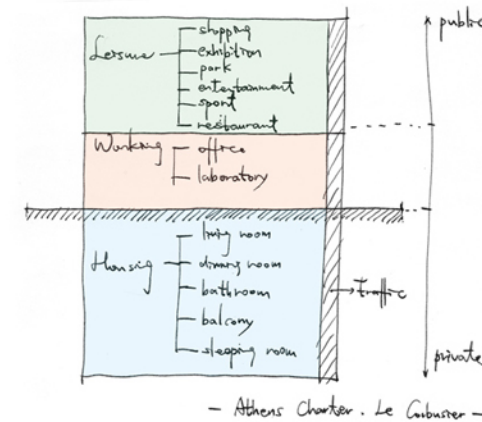 public
Leisure
shopping
exhibition
park
entertainment
sport
restaurant
Working
office
laboratory
Housing
living room
dining room
bathroom
balcony
sleeping room
traffic
private
- Athens Charter . Le Corbusier -